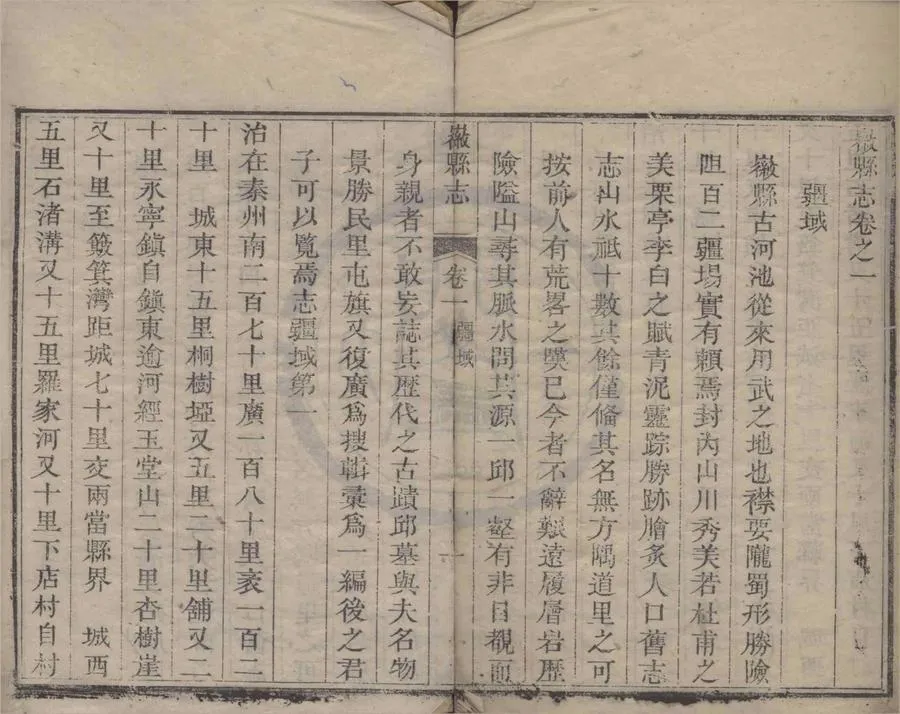 徽縣志卷之一
疆域
徽縣古河池從來用武之地也襟要隴蜀形勝險
阻百二疆場實有賴焉封內山川秀美若杜甫之
美栗亭李白之賦青泥靈踪勝跡膾炙人口舊志
志山水祗十數其餘僅俻其名無方隅道里之可
按前人有荒畧之嘆已今者不辭艱遠履層岩歷
險隘山尋其脈水問其源一邱一壑有非目覩
身親者不敢妄誌其歷代之古蹟邱墓與夫名物
景勝民里屯旗又復廣爲搜輯彙爲一編後之君
子可以覧焉志疆域第一
治在秦州南二百七十里廣一百八十里袤一百二
十里 城東十五里桐樹埡又五里二十里舖又二
十里永寧鎮自鎮東逾河經玉堂山二十里杏樹崖
又十里至簸箕灣距城七十里交兩當縣界 城西
五里石渚溝又十五里羅家河又十里下店村自村
徽縣志 卷一 疆域 一